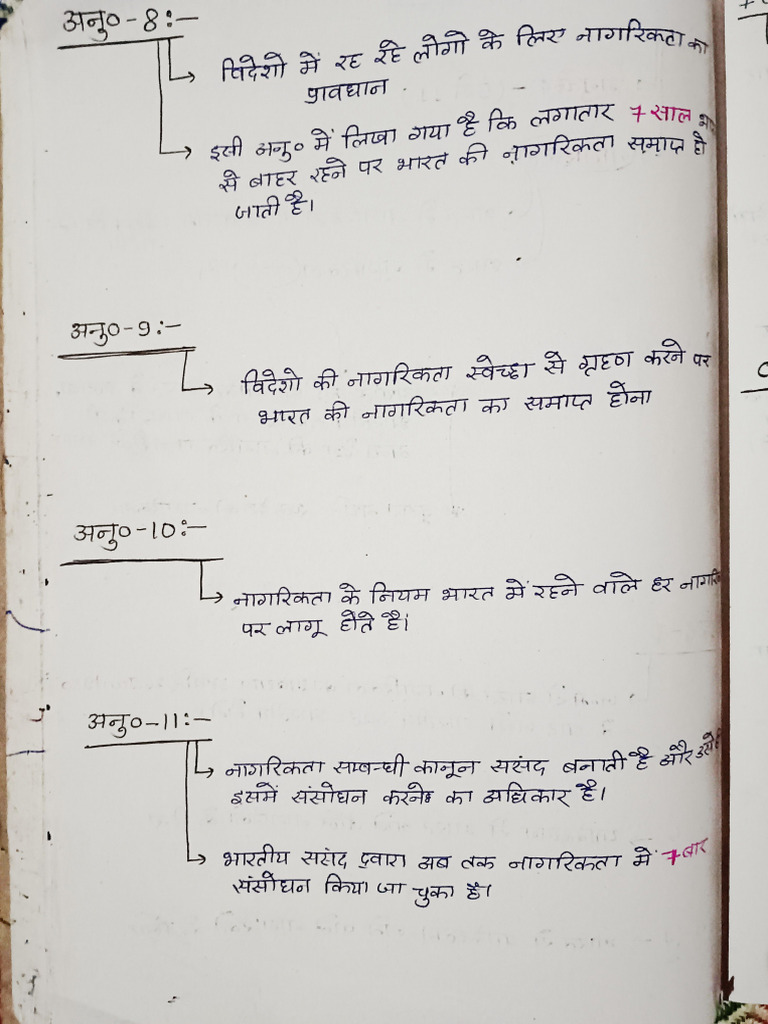 अनु०-8:-
विदेशो में रह रहे लोगो के लिए नागरिकता का
प्रावधान
इसी अनु० में लिखा गया है कि लगातार 7 साल
से बाहर रहने पर भारत की नागरिकता समाप्त हो
जाती है।
अनु०-9:-
विदेशो की नागरिकता स्वेच्छा से ग्रहण करने पर
भारत की नागरिकता का समाप्त होना
अनु०-10:-
नागरिकता के नियम भारत में रहने वाले हर
पर लागू होते है।
अनु०-11:-
नागरिकता सम्बन्धी कानून ससंद बनाती है और
इसमें संसोधन करने का अधिकार है।
भारतीय ससंद द्वारा अब तक नागरिकता में 7 बार
संसोधन किया जा चुका है।